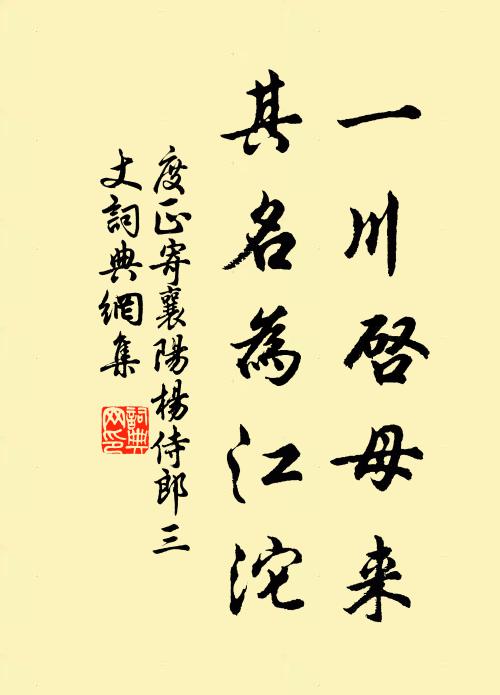 一川啓母来
其名為江沱
度正寄襄陽楊侍郎三
丈詞典網集
詞典
网印